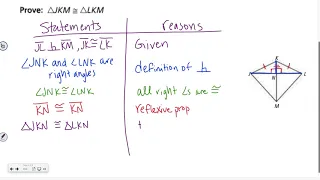 Prove: △JKM ≅ △LKM
Statements Reasons
JL ⊥ KM, JK ≅ LK Given
∠JNK and ∠LNK are right angles definition of ⊥
∠JNK ≅ ∠LNK all right ∠s are ≅
KN ≅ KN reflexive prop.
△JKN ≅ △LKN
K
J
N
L
M